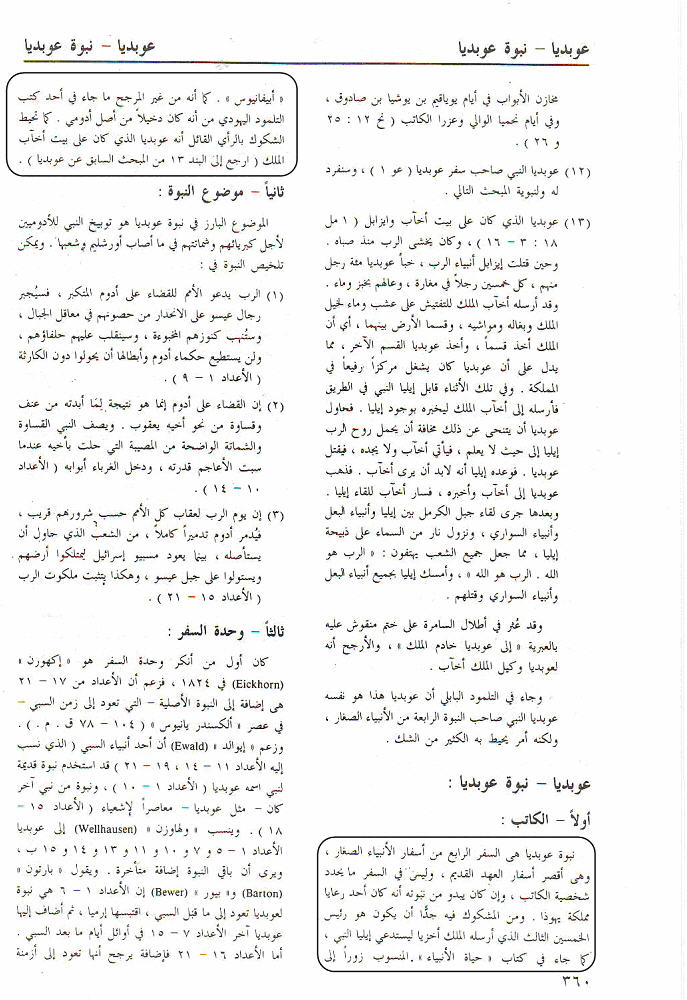 عوبديا – نبوة عوبديا
عوبديا – نبوة عوبديا
مخازن الأبواب في أيام يوياقيم بن يوشيا بن صادوق ،
وفي أيام نحميا الوالي وعزرا الكاتب ( نح ١٢ : ٢٥
و ٢٦ ) .
(١٢) عوبديا النبي صاحب سفر عوبديا ( عو ١ ) ، وسنفرد
له ولنبوية المبحث التالي .
(١٣) عوبديا الذي كان على بيت أخآب وايزابل ( ١ مل
١٨ : ٣ – ١٦ ) ، وكان يخشى الرب منذ صباه .
وحين قتلت إيزابل أنبياء الرب ، خبأ عوبديا مئة رجل
منهم ، كل خمسين رجلاً في مغارة ، وعالهم بخبز وماء .
وقد أرسله أخآب الملك للتفتيش على عشب وماء لخيل
الملك وبغاله ومواشيه ، وقسما الأرض بينهما ، أي أن
الملك أخذ قسماً ، وأخذ عوبديا القسم الآخر ، مما
يدل على أن عوبديا كان يشغل مركزاً رفيعاً في
المملكة . وفي تلك الأثناء قابل إيليا النبي في الطريق
فأرسله إلى أخآب الملك ليخبره بوجود إيليا . فحاول
عوبديا أن يتنحى عن ذلك مخافة أن يحمل روح الرب
إيليا إلى حيث لا يعلم ، فيأتي أخآب ولا يجده ، فيقتل
عوبديا . فوعده إيليا أنه لابد أن يرى أخآب . فذهب
عوبديا إلى أخآب وأخبره ، فسار أخآب للقاء إيليا .
وبعدها جرى لقاء جبل الكرمل بين إيليا وأنبياء البعل
وأنبياء السواري ، ونزول نار من السماء على ذبيحة
إيليا ، مما جعل جميع الشعب يهتفون : « الرب هو
الله . الرب هو الله » ، وأمسك إيليا بجميع أنبياء البعل
وأنبياء السواري وقتلهم .
وقد عُثر في أطلال السامرة على ختم منقوش عليه
بالعبرية « إلى عوبديا خادم الملك » ، والأرجح أنه
لعوبديا وكيل الملك أخآب .
وجاء في التلمود البابلي أن عوبديا هذا هو نفسه
عوبديا النبي صاحب النبوة الرابعة من الأنبياء الصغار ،
ولكنه أمر يحيط به الكثير من الشك .
عوبديا – نبوة عوبديا :
أولاً – الكاتب :
نبوة عوبديا هى السفر الرابع من أسفار الأنبياء الصغار ،
وهى أقصر أسفار العهد القديم ، وليس في السفر ما يحدد
شخصية الكاتب ، وإن كان يبدو من نبوته أنه كان أحد رعايا
مملكة يهوذا . ومن المشكوك فيه جدًّا أن يكون هو رئيس
الخمسين الثالث الذي أرسله الملك أخزيا ليستدعي إيليا النبي ،
كما جاء في كتاب « حياة الأنبياء » المنسوب زوراً إلى
« أبيفانيوس » . كما أنه من غير المرجح ما جاء في أحد كتب
التلمود اليهودي من أنه كان دخيلاً من أصل أدومي . كما تحيط
الشكوك بالرأي القائل أنه عوبديا الذي كان على بيت أخآب
الملك ( ارجع إلى البند ١٣ من المبحث السابق عن عوبديا ) .
ثانياً – موضوع النبوة :
الموضوع البارز في نبوة عوبديا هو توبيخ النبي للأدوميين
لأجل كبريائهم وشماتتهم في ما أصاب أورشليم وشعبها . ويمكن
تلخيص النبوة في :
(١) الرب يدعو الأمم للقضاء على أدوم المتكبر ، فسيُجبر
رجال عيسو على الانحدار من حصونهم في معاقل الجبال ،
وستُنهب كنوزهم المخبوءة ، وسينقلب عليهم حلفاؤهم ،
ولن يستطيع حكماء أدوم وأبطالها أن يحولوا دون الكارثة
( الأعداد ١ – ٩ ) .
(٢) إن القضاء على أدوم إنما هو نتيجة لِمَا أبدته من عنف
وقساوة من نحو أخيه يعقوب . ويصف النبي القساوة
والشماتة الواضحة من المصيبة التي حلت بأخيه عندما
سبت الأعاجم قدرته ، ودخل الغرباء أبوابه ( الأعداد
١٠ – ١٤ ) .
(٣) إن يوم الرب لعقاب كل الأمم حسب شرورهم قريب ،
فيُدمر أدوم تدميراً كاملاً ، من الشعب الذي حاول أن
يستأصله ، بينما يعود مسبيو إسرائيل ليمتلكوا أرضهم .
ويستولوا على جبل عيسو ، وهكذا يتثبت ملكوت الرب
( الأعداد ١٥ – ٢١ ) .
ثالثاً – وحدة السفر :
كان أول من أنكر وحدة السفر هو « إكهورن »
(Eickhorn) في ١٨٢٤ ، فزعم أن الأعداد من ١٧ – ٢١
هى إضافة إلى النبوة الأصلية – التي تعود إلى زمن السبي –
في عصر « ألكسندر يانيوس » ( ١٠٤ – ٧٨ ق . م . ) .
وزعم « إيوالد » (Ewald) أن أحد أنبياء السبي ( الذي نسب
إليه الأعداد ١١ – ١٤ ، ١٩ – ٢١ ) قد استخدم نبوة قديمة
لنبي اسمه عوبديا ( الأعداد ١ – ١٠ ) ، ونبوة من نبي آخر
كان – مثل عوبديا – معاصراً لإشعياء ( الأعداد ١٥ –
١٨ ) . وينسب « ولهاوزن » (Wellhausen) إلى عوبديا
الأعداد ١ – ٥ و ٧ و ١٠ و ١١ و ١٣ و ١٤ و ١٥ ب ،
ويرى أن باقي النبوة إضافة متأخرة . ويقول « بارتون »
(Barton) و« بيور » (Bewer) إن الأعداد ١ – ٦ هي نبوة
لعوبديا تعود إلى ما قبل السبي ، اقتبسها إرميا ، ثم أضاف إليها
عوبديا آخر الأعداد ٧ – ١٥ في أوائل أيام ما بعد السبي .
أما الأعداد ١٦ – ٢١ فإضافة يرجح أنها تعود إلى أزمنة
٣٦٠